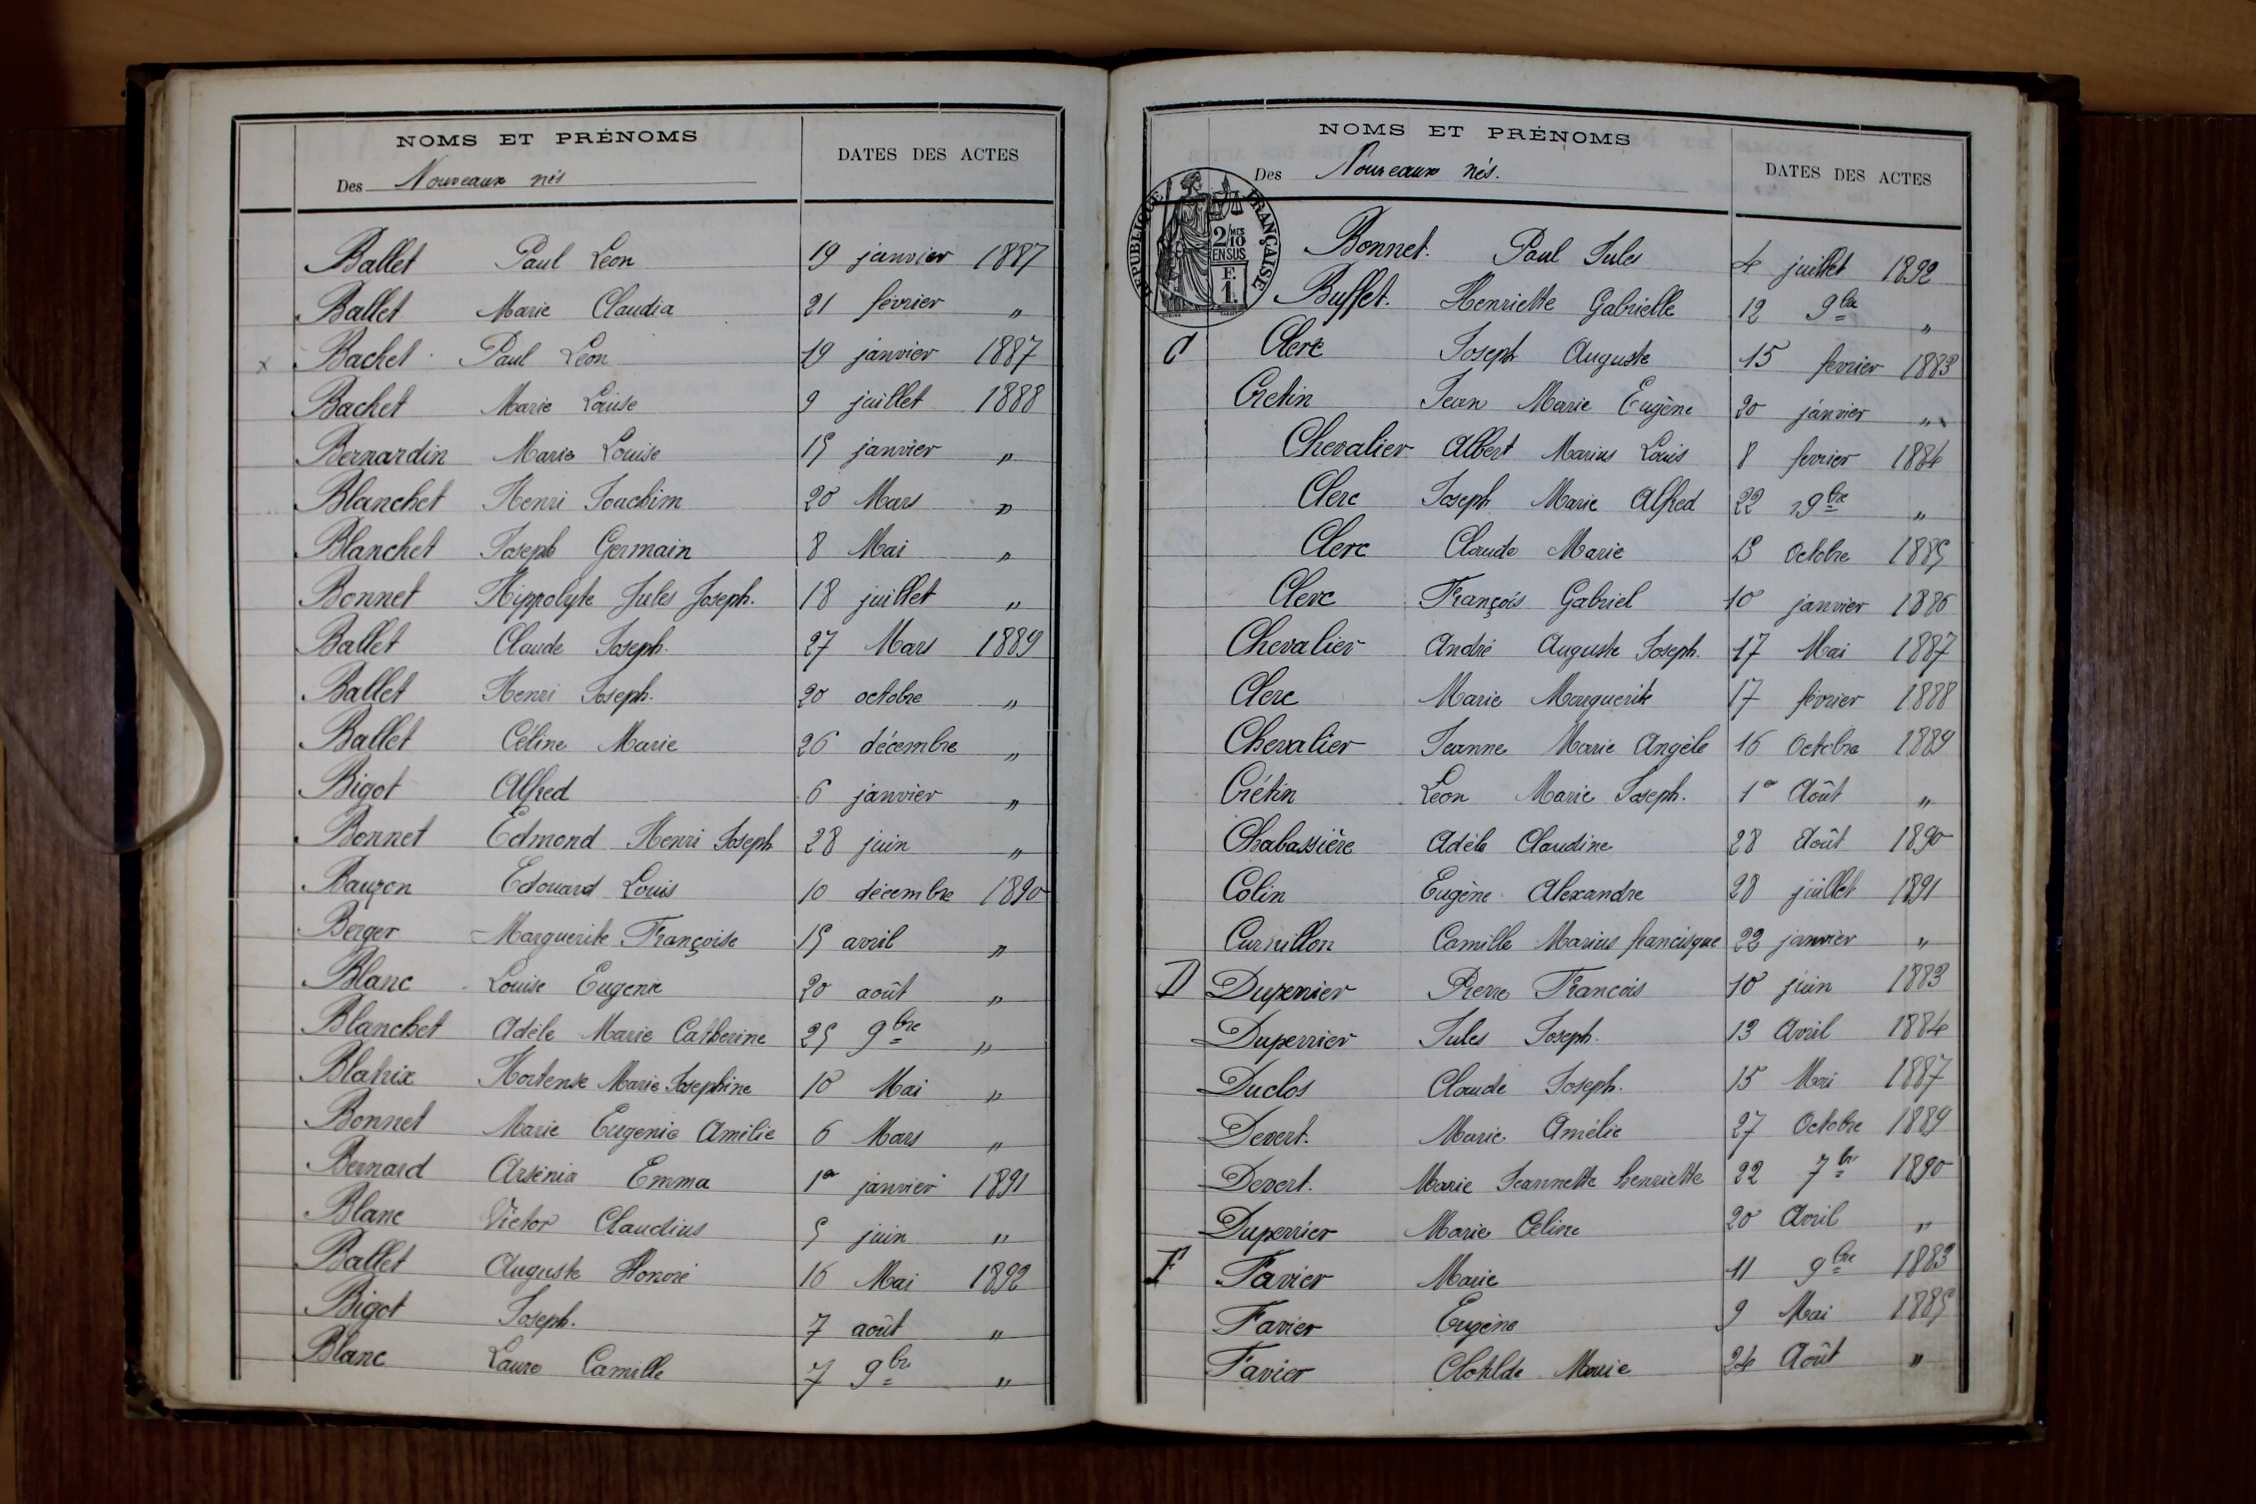 NOMS ET PRÉNOMS
DATES DES ACTES
Des Nouveaux nés
Ballet Paul Léon 19 janvier 1887
Ballet Marie Claudia 21 février "
x Bachet Paul Léon 19 janvier 1887
Bachet Marie Louise 9 juillet 1888
Bernardin Marie Louise 15 janvier "
Blanchet Henri Joachim 20 Mars "
Blanchet Joseph Germain 8 Mai "
Bonnet Hippolyte Jules Joseph. 18 juillet "
Ballet Claude Joseph. 27 Mars 1889
Ballet Henri Joseph. 20 octobre "
Ballet Céline Marie 26 décembre "
Bigot Alfred 6 janvier "
Bonnet Edmond Henri Joseph 28 juin "
Bauzon Edouard Louis 10 décembre 1890
Berger Marguerite Françoise 15 avril "
Blanc Louise Eugenie 20 août "
Blanchet Adèle Marie Catherine 25 9bre "
Blatrix Hortense Marie Josephine 10 Mai "
Bonnet Marie Eugenie Amélie 6 Mars "
Bernard Arsénia Emma 1er janvier 1891
Blanc Victor Claudius 5 juin "
Ballet Auguste Honoré 16 Mai 1892
Bigot Joseph. 7 août "
Blanc Laure Camille 7 9bre "
NOMS ET PRÉNOMS
DATES DES ACTES
Des Nouveaux nés.
RÉPUBLIQUE FRANÇAISE
2/10 MES
EN SUS
F.
1.
Bonnet. Paul Jules 4 juillet 1892
Buffet. Henriette Gabrielle 12 9bre "
C Clerc Joseph Auguste 15 fevrier 1883
Cretin Jean Marie Eugène 20 janvier "
Chevalier Albert Marius Louis 8 fevrier 1884
Clerc Joseph Marie Alfred 22 9bre "
Clerc Claude Marie 13 Octobre 1885
Clerc François Gabriel 10 janvier 1886
Chevalier André Auguste Joseph. 17 Mai 1887
Clerc Marie Marguerite 17 février 1888
Chevalier Jeanne Marie Angèle 16 Octobre 1889
Crétin Léon Marie Joseph. 1er Août "
Chabassière Adèle Claudine 28 Août 1890
Colin Eugène Alexandre 28 juillet 1891
Curnillon Camille Marius francisque 22 janvier "
D Duperrier Pierre François 10 juin 1883
Duperrier Jules Joseph. 13 Avril 1884
Duclos Claude Joseph. 15 Mai 1887
Devert. Marie Amélie 27 Octobre 1889
Devert. Marie Jeannette henriette 22 7br 1890
Duperrier Marie Céline 20 Avril "
F Favier Marie 11 9bre 1883
Favier Eugène 9 Mai 1885
Favier Clotilde Marie 24 Août "